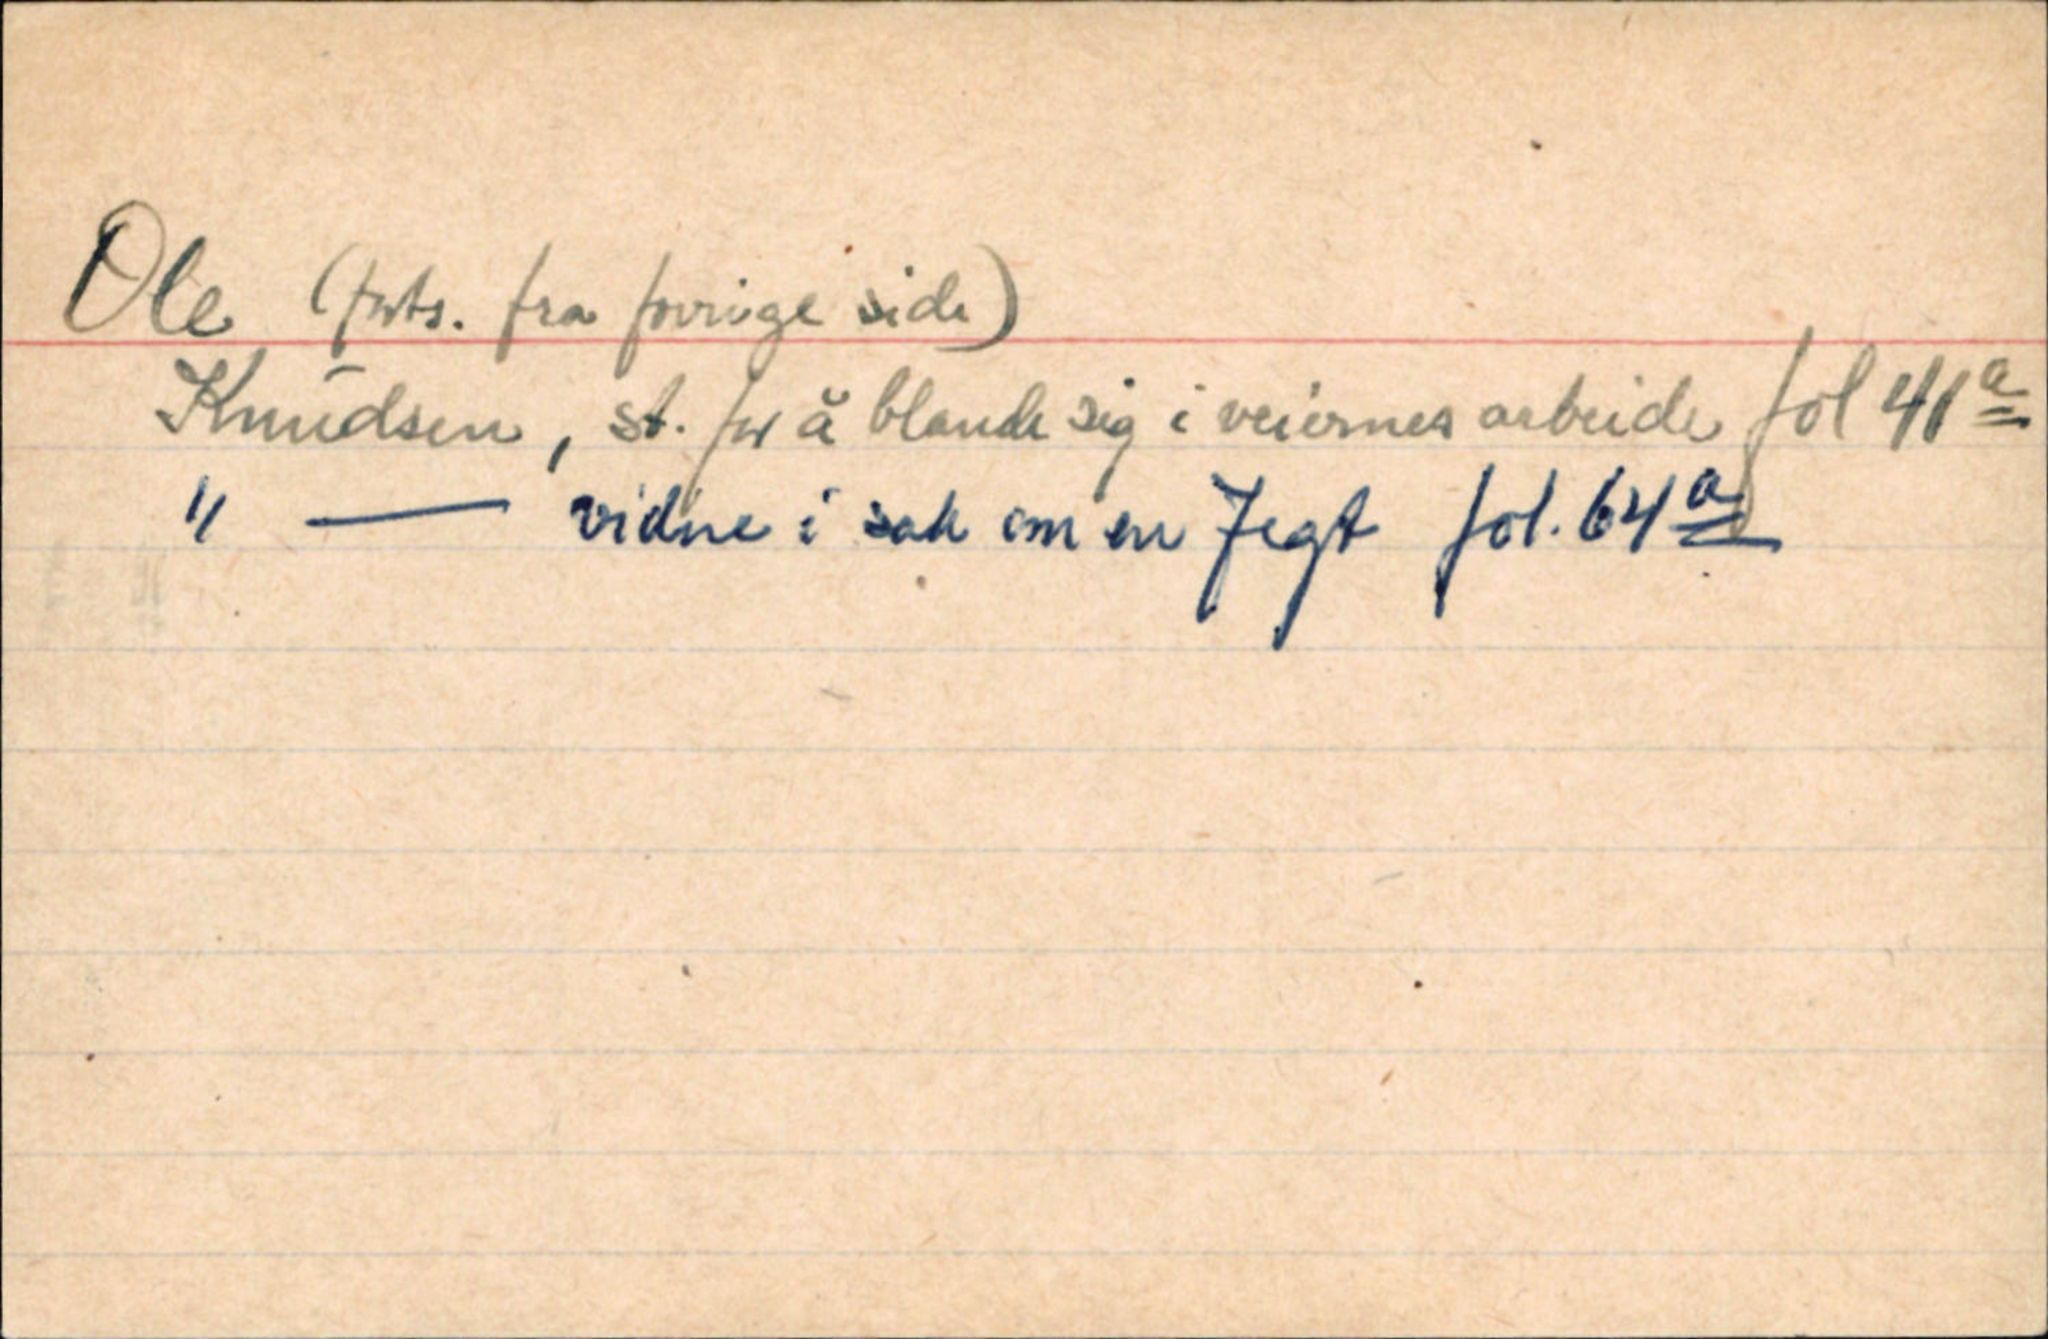 Ole (forts. fra forrige side)
Knudsen, st. for å blande sig i veiernes arbeide fol 41ª
" — vidne i sak om en Jegt fol. 64ª